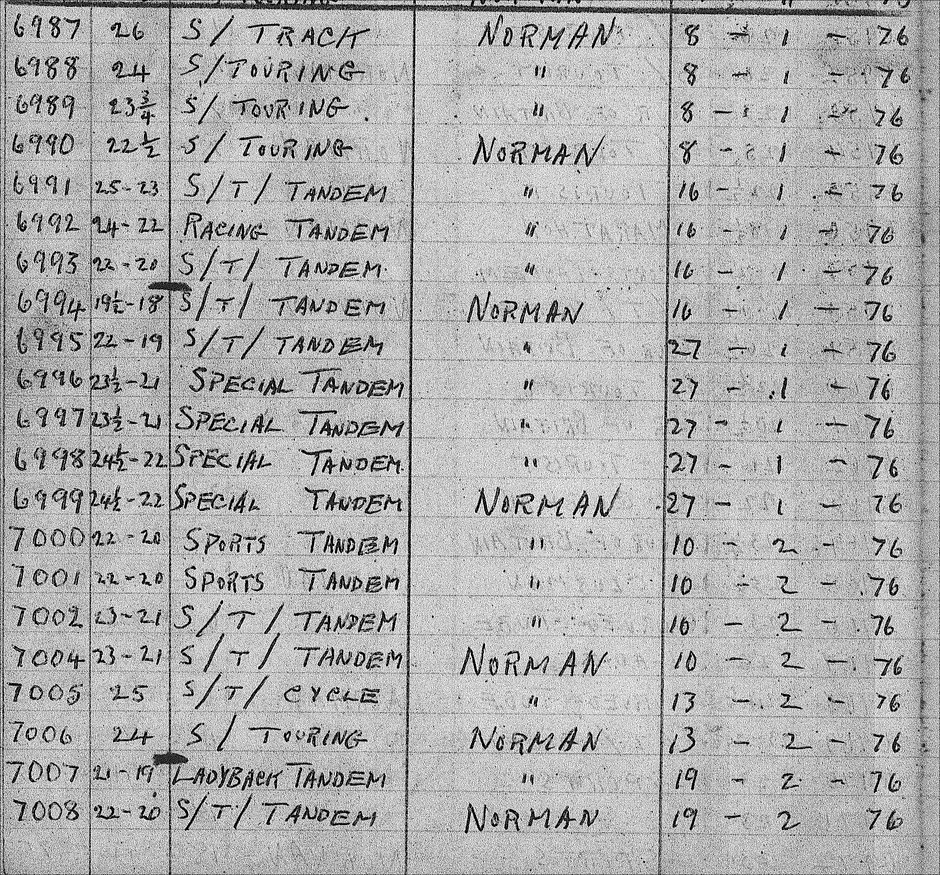 6987 26 S/ TRACK NORMAN 8 - 1 - 76
6988 24 S/TOURING " 8 - 1 - 76
6989 23 3/4 S/ TOURING. " 8 - 1 - 76
6990 22 1/2 S/ TOURING NORMAN 8 - 1 - 76
6991 25-23 S/T/ TANDEM " 16 - 1 - 76
6992 24-22 RACING TANDEM " 16 - 1 - 76
6993 22-20 S/T/ TANDEM " 16 - 1 - 76
6994 19 1/2-18 S/T/ TANDEM NORMAN 16 - 1 - 76
6995 22-19 S/T/ TANDEM " 27 - 1 - 76
6996 23 1/2-21 SPECIAL TANDEM " 27 - 1 - 76
6997 23 1/2-21 SPECIAL TANDEM " 27 - 1 - 76
6998 24 1/2-22 SPECIAL TANDEM " 27 - 1 - 76
6999 24 1/2-22 SPECIAL TANDEM NORMAN 27 - 1 - 76
7000 22-20 SPORTS TANDEM " 10 - 2 - 76
7001 22-20 SPORTS TANDEM " 10 - 2 - 76
7002 23-21 S/T/ TANDEM " 10 - 2 - 76
7004 23-21 S/T/ TANDEM NORMAN 10 - 2 - 76
7005 25 S/T/ CYCLE " 13 - 2 - 76
7006 24 S/ TOURING NORMAN 13 - 2 - 76
7007 21-19 LADYBACK TANDEM " 19 - 2 - 76
7008 22-20 S/T/ TANDEM NORMAN 19 - 2 76